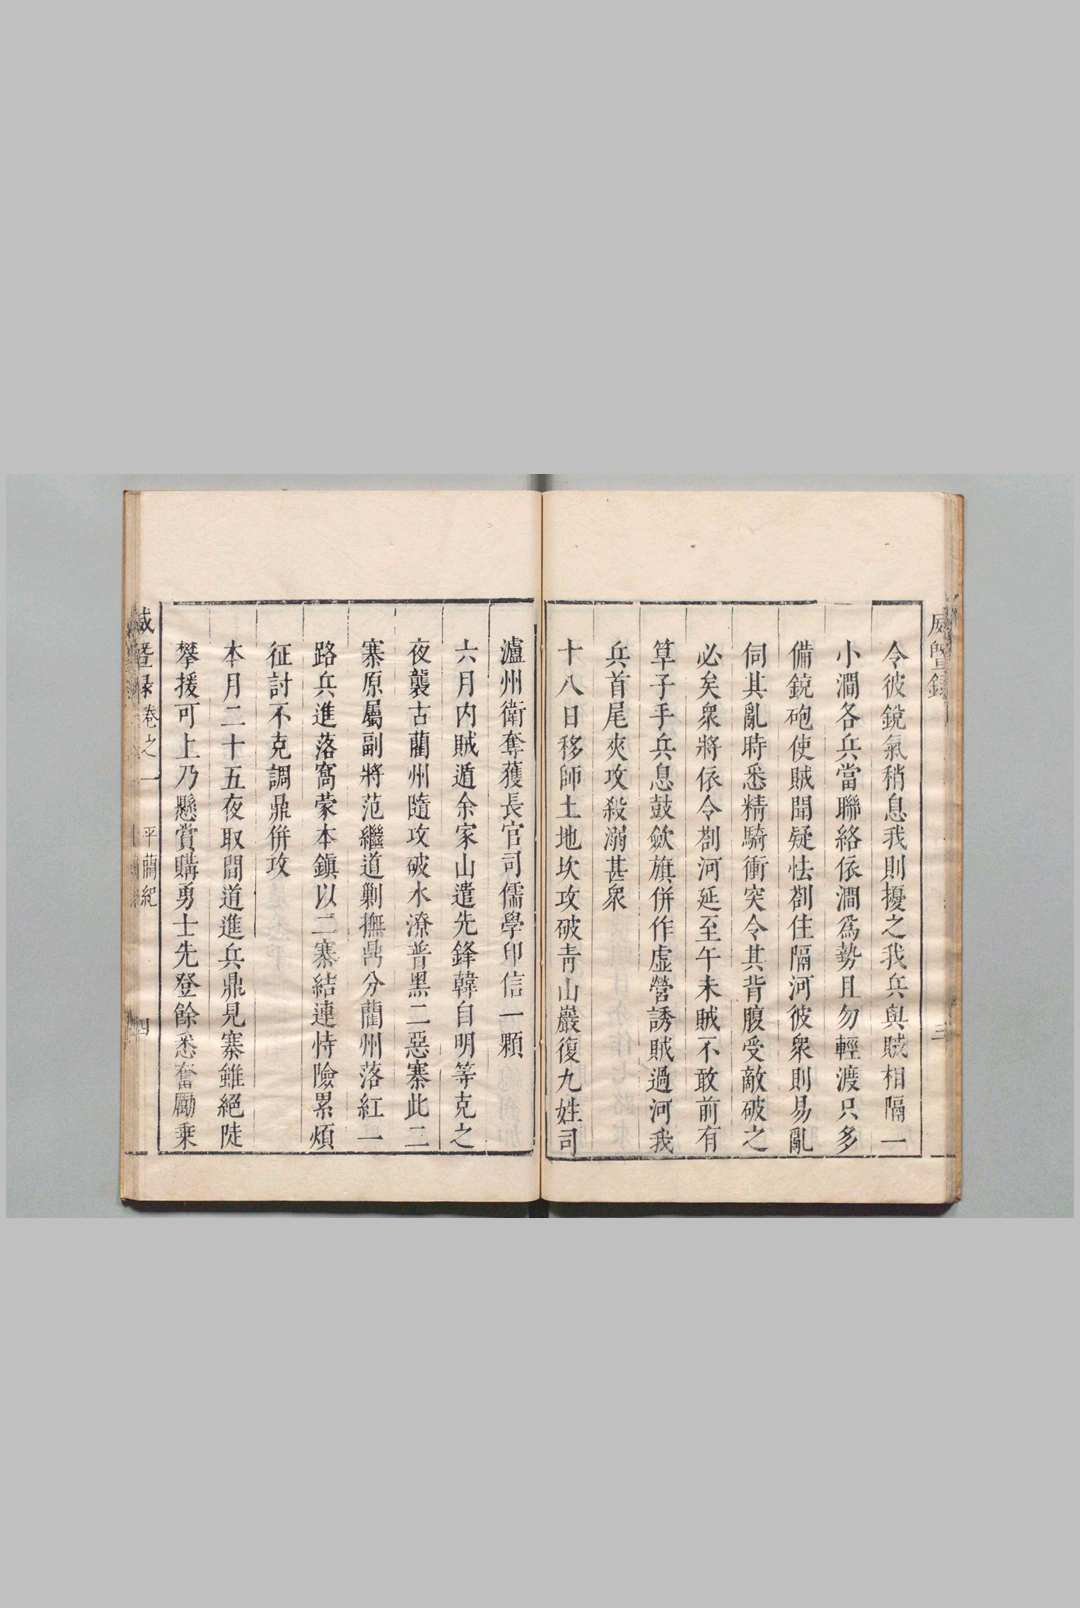 令彼鏡氣稍息我則擾之我兵與賊相隔一
小澗各兵當聯絡依澗為勢且勿輕渡只多
備鏡砲使賊聞疑怯劄住隔河彼衆則易亂
伺其亂時悉精騎衝突令其背腹受敵破之
必矣衆將依令劄河延至午未賊不敢前有
筸子手兵息鼓歛旗併作虛營誘賊過河我
兵首尾夾攻殺溺甚衆
十八日移師土地坎攻破靑山巖復九姓司
瀘州衛奪獲長官司儒學印信一顆
六月内賊遁余家山遣先鋒韓自明等克之
夜襲古藺州隨攻破水潦普黑二惡寨此二
寨原屬副將范繼道剿撫禼分藺州落紅一
路兵進落窩蒙本鎮以二寨結連恃險累煩
征討不克調鼎併攻
本月二十五夜取間道進兵鼎見寨雖絕陡
攀援可上乃懸賞購勇士先登餘悉奮勵乘
威暋錄卷之一 平藺紀 四